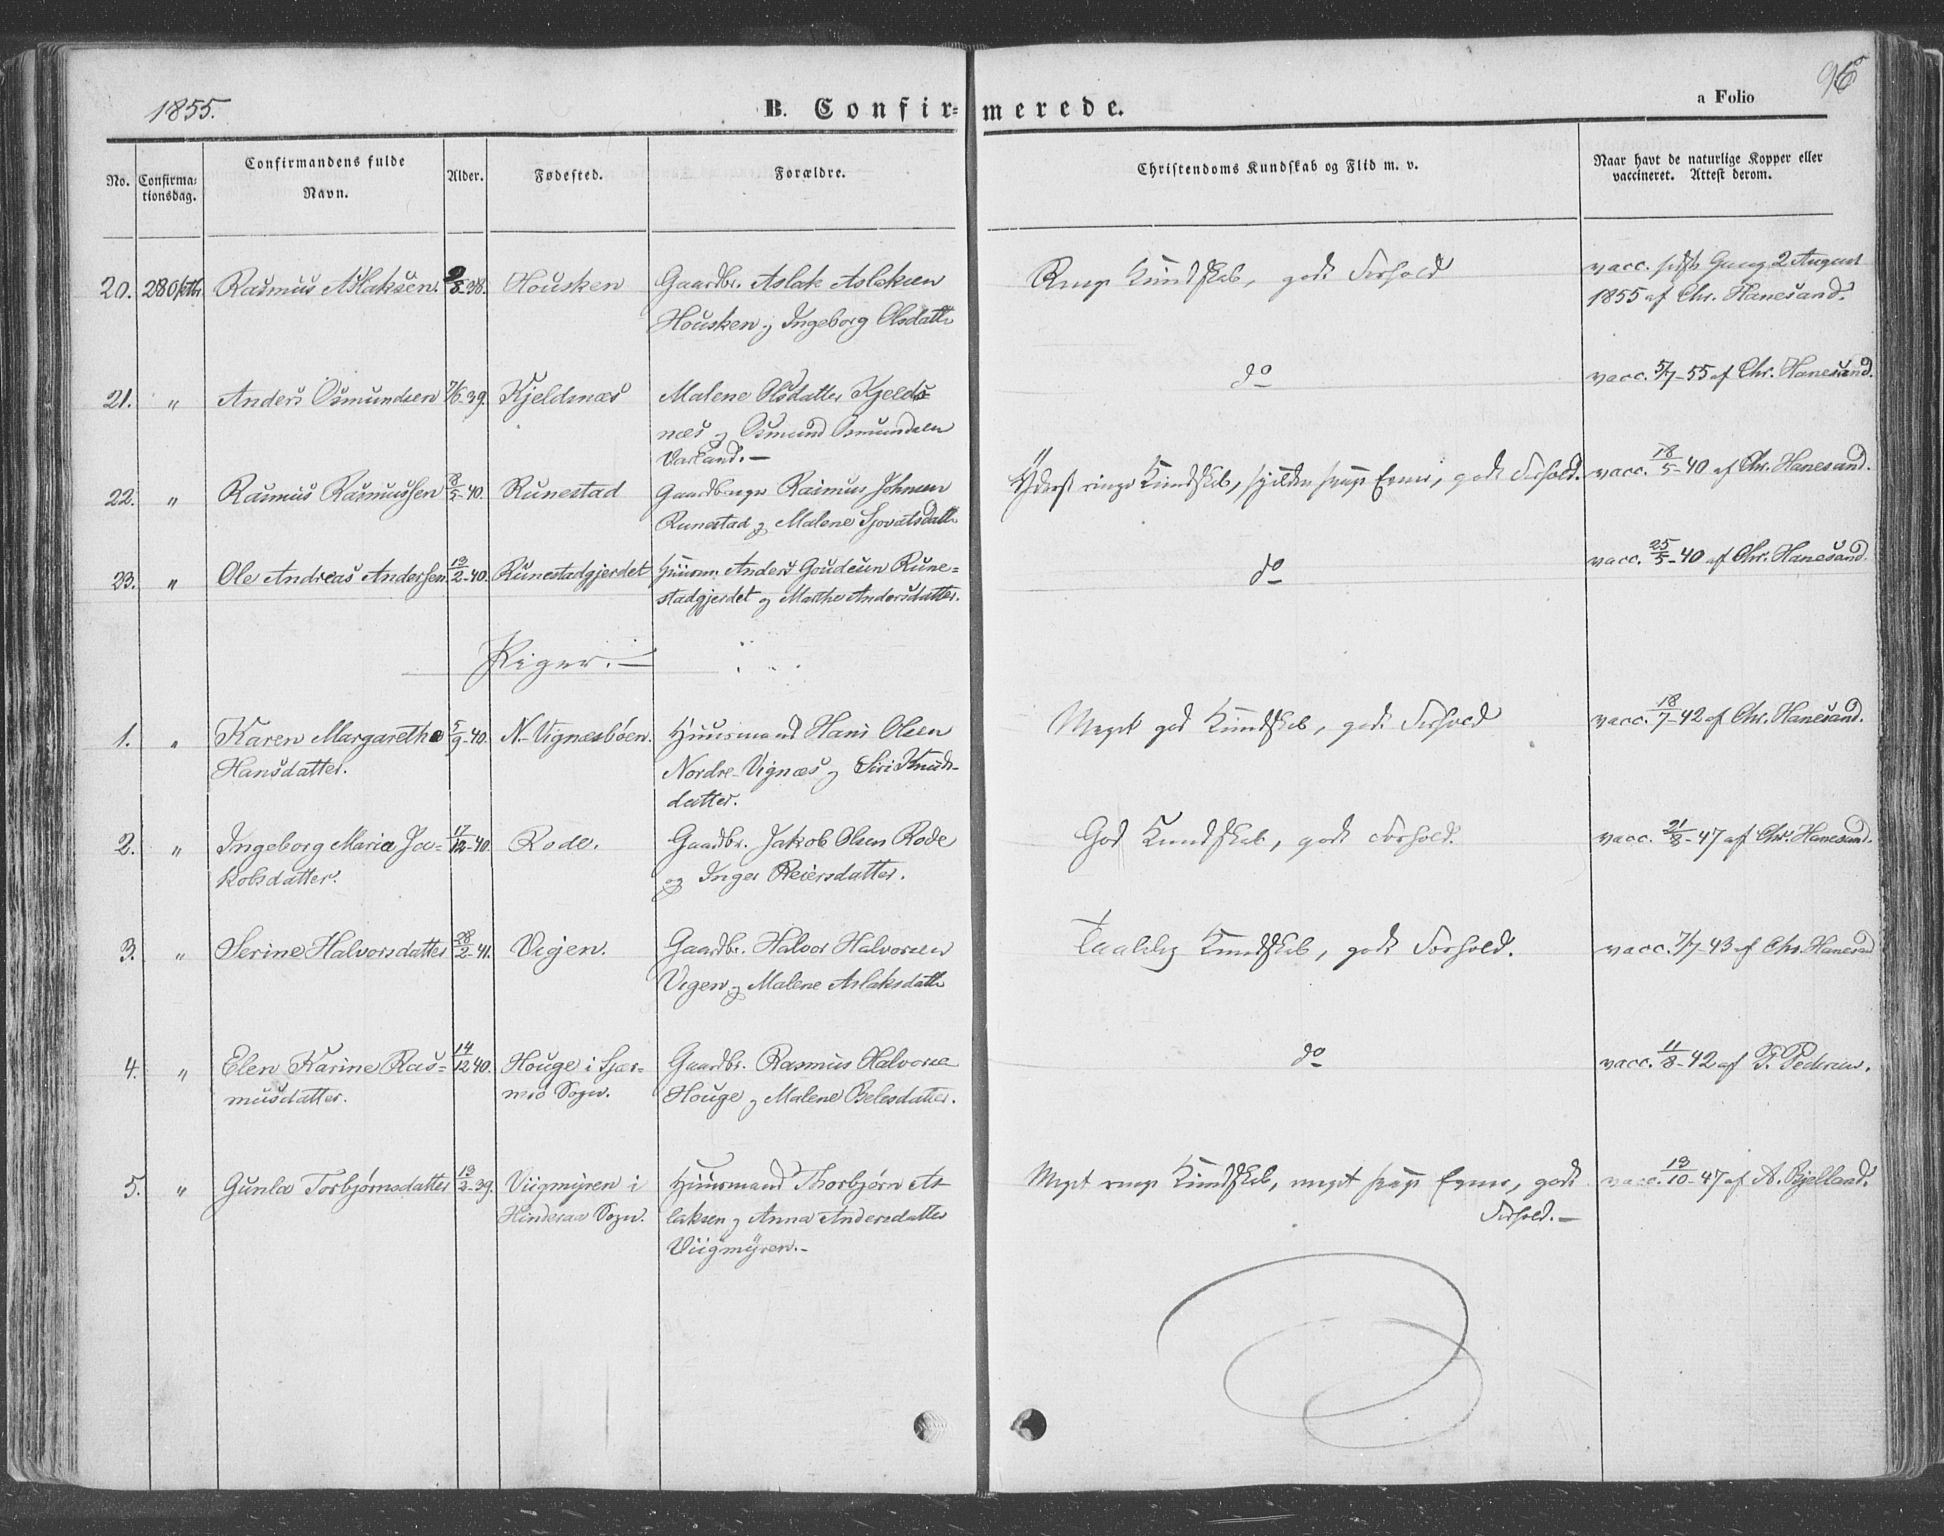 1855.
B. Confir=
merede.
a Folio
96
No.
Confirma=
tionsdag.
Confirmandens fulde
Navn.
Alder.
Fødested.
Forældre.
Christendoms Kundskab og Flid m. v.
Naar havt de naturlige Kopper eller
vaccineret. Attest derom.
20. 28 Rasmus Aslaksen. 38. Housken Gaardbr. Aslak Aslaksen
Housken og Ingeborg Olsdattr
Ringe Kundskab, godt Forhold
vacc. sidste Gang 2 August
1855 af Chr. Hanesand.
21. " Anders Osmundsen 7/6-39. Kjeldsnæs Malene Olsdatter Kjelds=
næs og Osmund Osmundsen
do
vacc. 5/7-55 af Chr. Hanesand.
22. " Rasmus Rasmussen 8/5-40. Runestad Rasmus Johnsen
Runestad og Malene Sjovatsdattr
Yderst ringe Kundskab, svage Evner, godt Forhold.
vacc. 18/5-40 af Chr. Hanesand.
23. " Ole Andreas Andersen 13/2-40. Runestadgjerdet Huusm. Anders Goudesen Rune=
stadgjerdet og Marthe Andersdatter.
do
vacc. 25/5-40 af Chr. Hanesand.
Piger.—
1. " Karen Margarethe 5/9-40. N. Vignesbøen. Huusmand Hans Olsen
Hansdatter. Nordre-Vignæs og Siri Knuds-
datter.
Meget god Kundskab, godt Forhold
vacc. 18/7-42 af Chr. Hanesand.
2. " Ingeborg Maria Ja= 17/12-40. Rode. Gaardbr. Jakob Olsen Rode
kobsdatter. og Inger Reiersdatter.
God Kundskab, godt Forhold.
vacc. 21/8-47 af Chr. Hanesand.
3. " Serine Halvorsdatter 28/2-41. Vigen. Gaardbr. Halvor Halvorsen
Vigen og Malene Aslaksdattr
Taalelig Kundskab, godt Forhold.
vacc. 7/7-43 af Chr. Hanesand
4. " Elen Karine Ras= 14/12 40. Houge i Gaardbr. Rasmus Halvorsen
musdatter. Sogn. Houge og Malene
do
vacc. 11/8-42 af Pedersen.
5. " Gunla Torbjørnsdatter 13/2-39. Viigmyren i Huusmand Thorbjørn As
Hinderaa Sogn. laksen og Anna Andersdatter
Viigmyren.-
Meget ringe Kundskab, meget svage Evner, godt
Forhold.—
vacc. 13/10-47 af A. Bjelland.